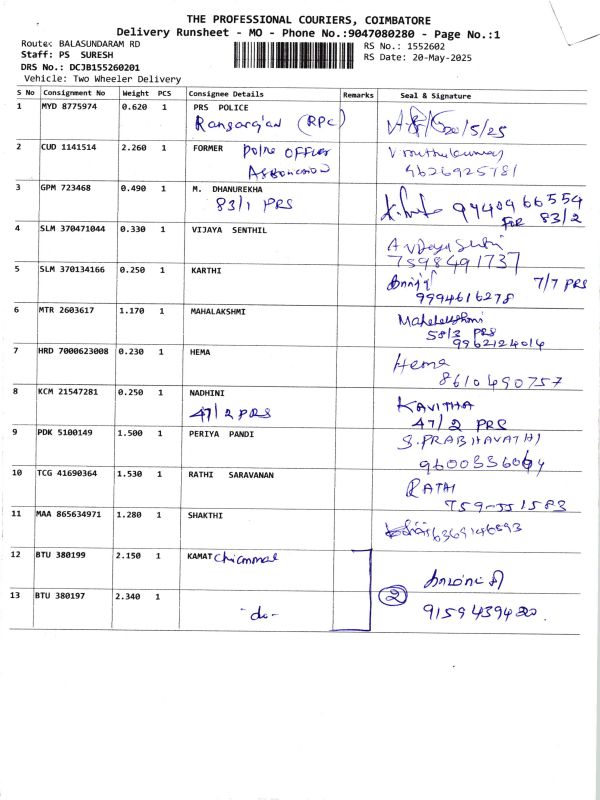 THE PROFESSIONAL COURIERS, COIMBATORE
Delivery Runsheet - MO - Phone No.:9047080280 - Page No.:1
Route: BALASUNDARAM RD
RS No.: 1552602
Staff: PS SURESH
RS Date: 20-May-2025
DRS No.: DCJB155260201
Vehicle: Two Wheeler Delivery
S No Consignment No Weight PCS Consignee Details Remarks Seal & Signature
1 MYD 8775974 0.620 1 PRS POLICE
Rangarajan (RPC) 20/5/25
2 CUD 1141514 2.260 1 FORMER Police Officer
Association 9626925781
3 GPM 723468 0.490 1 M. DHANUREKHA
83/1 PRS 9940966554
For 83/2
4 SLM 370471044 0.330 1 VIJAYA SENTHIL
7598491737
5 SLM 370134166 0.250 1 KARTHI 7/7 PRS
9994616278
6 MTR 2603617 1.170 1 MAHALAKSHMI Mahalakshmi
58/3 PRS
9962124014
7 HRD 7000623008 0.230 1 HEMA Hema
8610490757
8 KCM 21547281 0.250 1 NADHINI KAVITHA
47/2 PRS 47/2 PRS
9 PDK 5100149 1.500 1 PERIYA PANDI S.PRABHAVATHI
10 TCG 41690364 1.530 1 RATHI SARAVANAN RATHI
11 MAA 865634971 1.280 1 SHAKTHI 6369146893
12 BTU 380199 2.150 1 KAMAT
13 BTU 380197 2.340 1 -do- 2